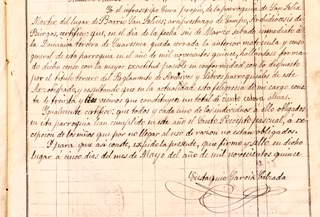 El infrascrito Cura párroco, de la parroquia de San Felix
Martir del lugar de Barrio San Felices, arciprestazgo de Campo, Archidiócesis de
Burgos, certifico: que en el día de la fecha seis de Marzo sábado inmediato á
la Dominica tercera de Cuaresma queda cerrada la anterior matrícula y censo
general de esta parroquia en el año de mil novecientos quince, hallándose formado
dicho censo con la mayor exactitud posible en conformidad con lo dispuesto
por el título tercero del Reglamento de Archivos y Libros parroquiales de este
Arzobispado, y resultando que en la actualidad esta feligresía de mi cargo consta
de treinta y tres vecinos que constituyen un total de ciento almas.
Igualmente certifico: que todos y cada uno de los individuos á ello obligados
en esta parroquia han cumplido en este año el Santo Precepto pascual, á ex-
cepción de los niños que por no llegar al uso de razón no están obligados.
Y para que así conste, expido la presente, que firmo y sello, en dicho
lugar a cinco días del mes de Mayo del año de mil novecientos quince
Eustaquio García